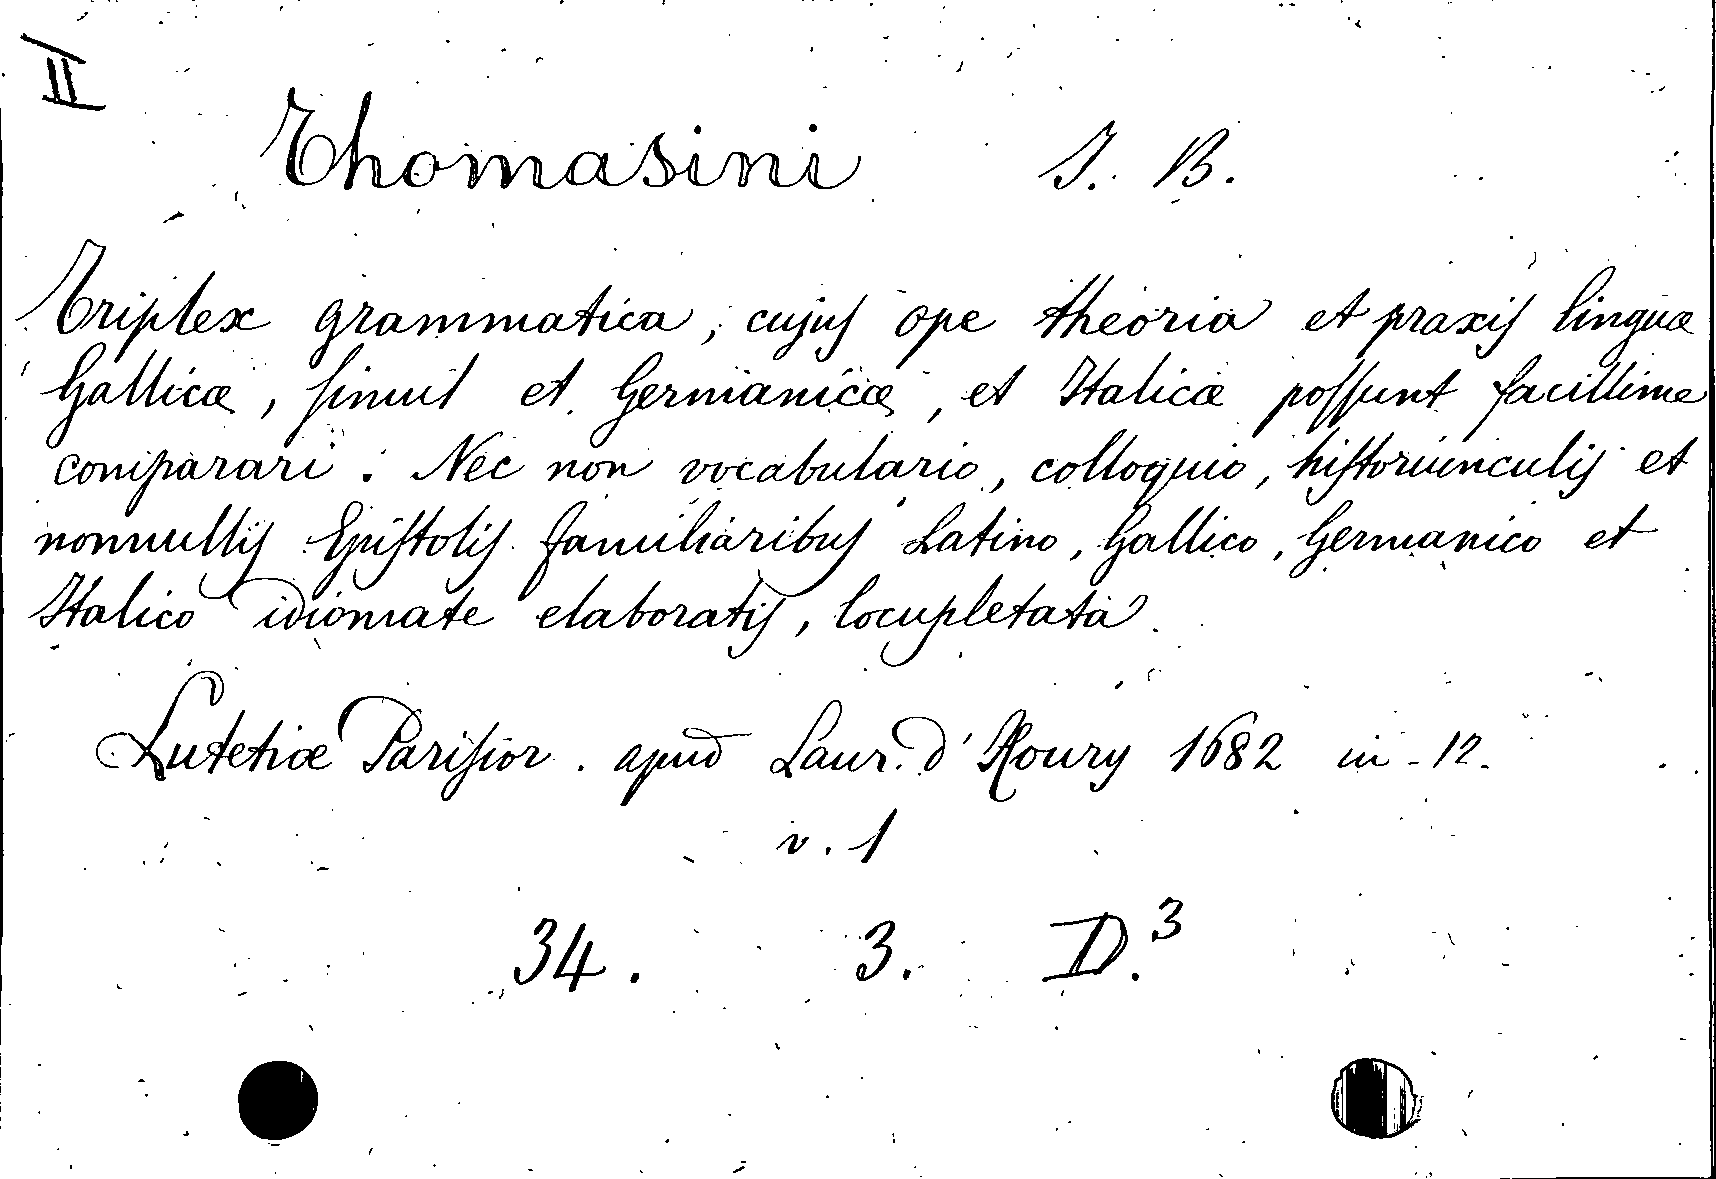 II
Thomasini J. B.
Triplex grammatica, cujus ope theoria et praxis linguæ
Gallicæ, simul et Germanicæ, et Italicæ possunt facillime
comparari. Nec non vocabulario, colloquio, historiunculis et
nonnullis Epistolis familiaribus Latino, Gallico, Germanico et
Italico idiomate elaboratis, locupletata.
Lutetiæ Parisior. apud Laur. d'Houry 1682 in-12.
v. 1
34. 3. D.3